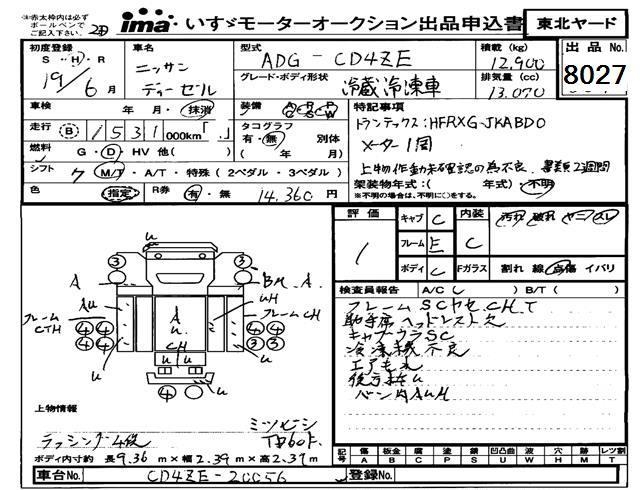 ※赤太枠内は必ず
ボールペンで
ご記入下さい。
ima いすゞモーターオークション出品申込書 東北ヤード
初度登録 車名 型式 積載(kg) 出品 No.
S・H・R ニッサン ADG-CD4ZE 12,900 8027
19年 6月 ディーゼル グレード・ボディ形状 冷蔵冷凍車 排気量(cc) 13,070
車検 年・月・抹消 装備 A/C P/S P/W 特記事項
走行 B 1531,000km タコグラフ 有・無 別体 トランテックス:HFRXG-JKABD0
メーター1周
燃料 G・D・HV 他( ) ( 年 月) 上物作動未確認の為不良、書類2週間
シフト 7 M/T・A/T・特殊(2ペダル・3ペダル) 架装物年式:( 年式)・不明
色 指定 R券 有・無 14,360円 ※不明の場合は、不明に○をする。
評価 キャブ C 内装 汚れ 破れ ヤニ スレ
1 フレーム E C
ボディ C Fガラス 割れ 線 点傷 イバリ
検査員報告 A/C( ) B/T( )
フレームSCサビ、CH、T
助手席ヘッドレスト欠
キャブウラSC
冷凍機不良
エアもれ
後方枠U
バン内AUH
U
3 3
A BM、A
AU UH
フレーム CTH A U フレームCH
4 4 CH 4 4
4 4 U U 4 4
U U
4 U
上物情報
ミツビシ
ラッシング4段
ボディ内寸約 長9.36m×幅2.39m×高2.37m
記号 傷 A 板金 B 腐 C 塗 P 錆 S 凹凸曲 U ワ W 穴 H 跡 M レツ割 T
車台No. CD4ZE-20056 登録No.